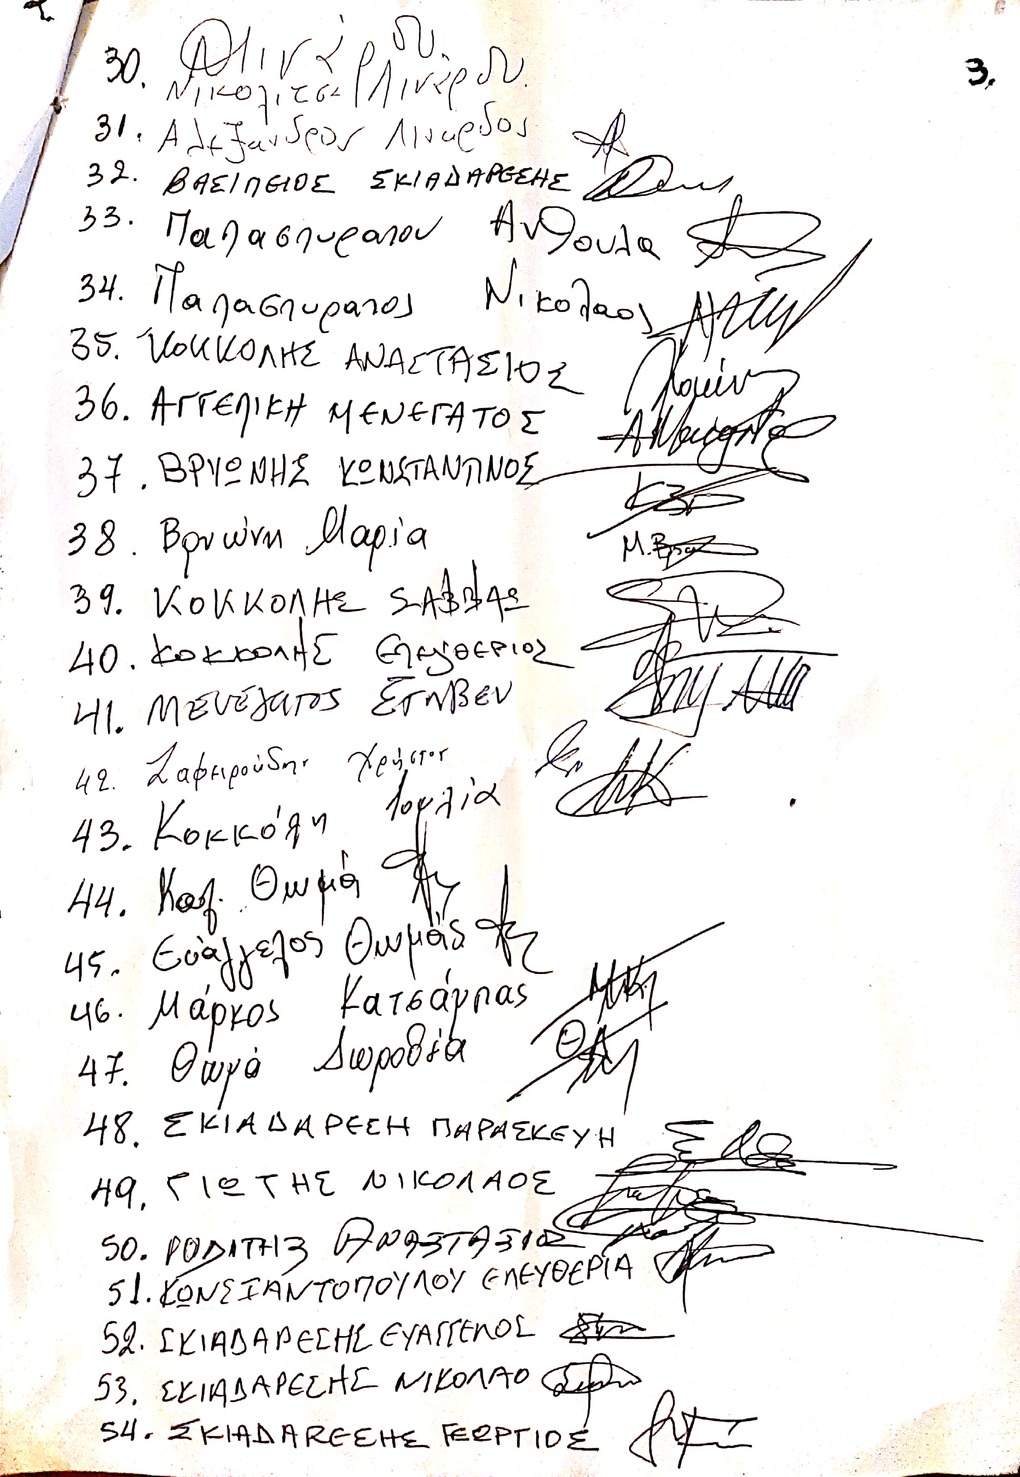 3.
30. Λινάρδου
Νικολίτσα Λινάρδου
31. Αλέξανδρος Λιναρδος
32. ΒΑΣΙΛΕΙΟΣ ΣΚΙΑΔΑΡΕΣΗΣ
33. Παπασπυρατου Ανθουλα
34. Παπασπυρατος Νικολαος
35. ΚΟΚΚΟΛΗΣ ΑΝΑΣΤΑΣΙΟΣ
36. ΑΓΓΕΛΙΚΗ ΜΕΝΕΓΑΤΟΣ
37. ΒΡΥΩΝΗΣ ΚΩΝΣΤΑΝΤΙΝΟΣ
38. Βρυώνη Μαρία Μ.Βρυ
39. ΚΟΚΚΟΛΗΣ ΣΑΒΒΑΣ
40. ΚΟΚΚΟΛΗΣ ΕΛΕΥΘΕΡΙΟΣ
41. ΜΕΝΕΓΑΤΟΣ ΣΤΗΒΕΝ
42. Ζαφειρούδης Χρήστος
43. Κοκκόλη Ιουλία
44. Θωμά
45. Ευάγγελος Θωμάς
46. Μάρκος Κατσάμπας
47. Θωμά Δωροθέα
48. ΣΚΙΑΔΑΡΕΣΗ ΠΑΡΑΣΚΕΥΗ
49. ΓΙΩΤΗΣ ΝΙΚΟΛΑΟΣ
50. ΡΟΔΙΤΗΣ ΑΝΑΣΤΑΣΙΟΣ
51. ΚΩΝΣΤΑΝΤΟΠΟΥΛΟΥ ΕΛΕΥΘΕΡΙΑ
52. ΣΚΙΑΔΑΡΕΣΗΣ ΕΥΑΓΓΕΛΟΣ
53. ΣΚΙΑΔΑΡΕΣΗΣ ΝΙΚΟΛΑΟ
54. ΣΚΙΑΔΑΡΕΣΗΣ ΓΕΩΡΓΙΟΣ